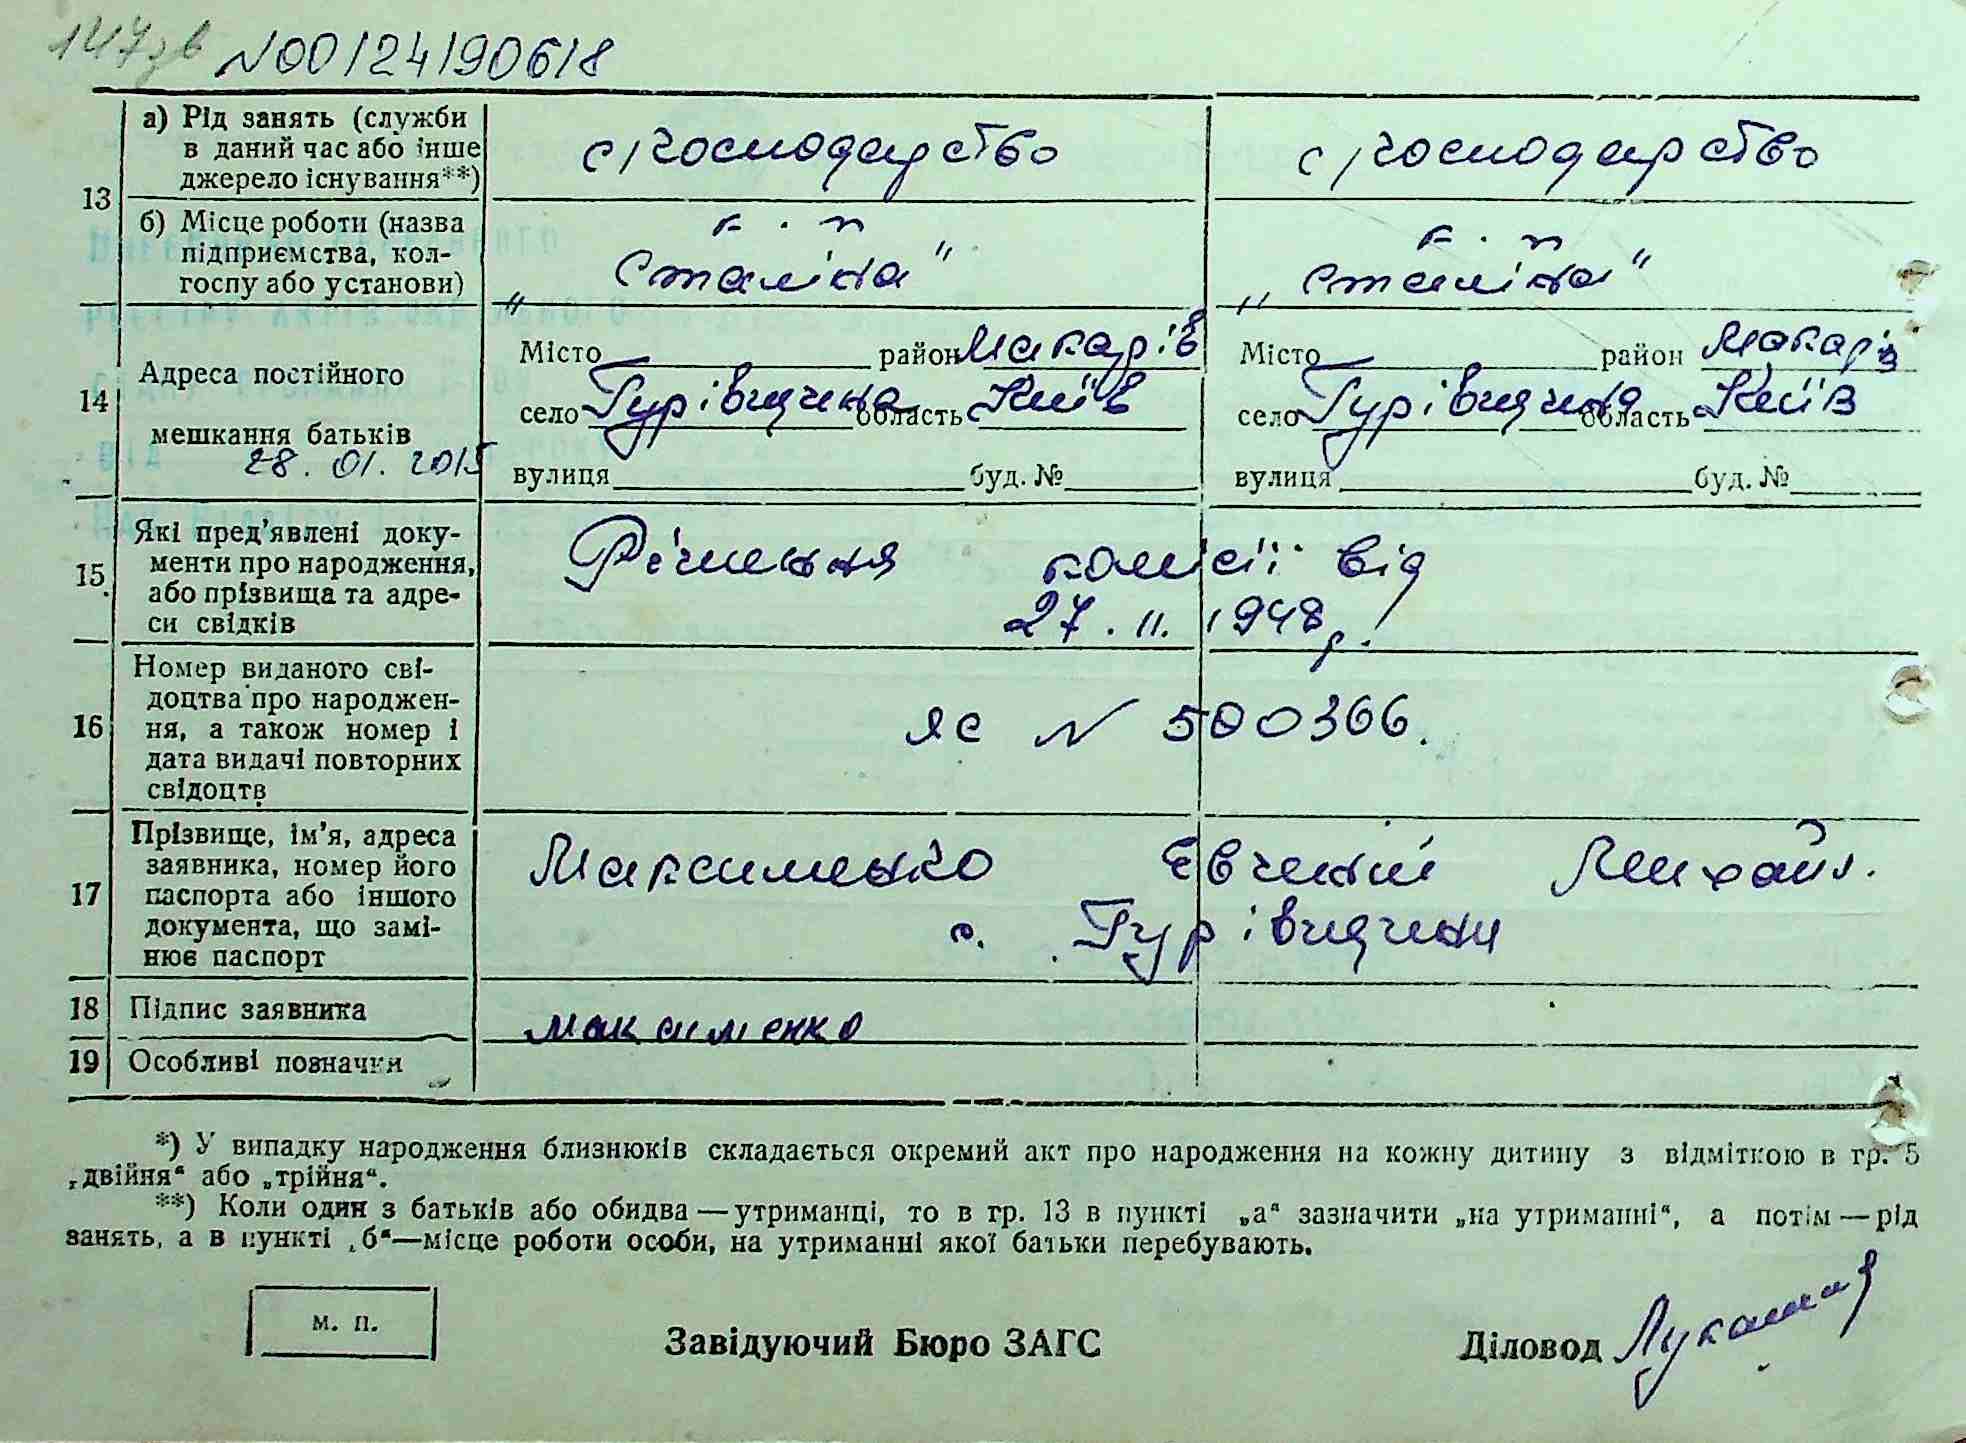 147зв N00124190618
13 а) Рід занять (служби в даний час або інше джерело існування**) с/господарство с/господарство
б) Місце роботи (назва підприємства, колгоспу або установи) к-п „Сталіна" к-п „Сталіна"
14 Адреса постійного мешкання батьків 28.01.2015
Місто район Макарів Місто район Макарів
село Гурівщина область Київ село Гурівщина область Київ
вулиця буд. № вулиця буд. №
15 Які пред'явлені доку-
менти про народження,
або прізвища та адре-
си свідків
Рішення комісії від
27.II.1948р.
16 Номер виданого сві-
доцтва про народжен-
ня, а також номер і
дата видачі повторних
свідоцтв
ЯС N 500366.
17 Прізвище, ім'я, адреса
заявника, номер його
паспорта або іншого
документа, що замі-
нює паспорт
Максименко Євгеній Михайл.
с. Гурівщини
18 Підпис заявника Максименко
19 Особливі позначки
*) У випадку народження близнюків складається окремий акт про народження на кожну дитину з відміткою в гр. 5
„двійня" або „трійня".
**) Коли один з батьків або обидва — утриманці, то в гр. 13 в пункті „а" зазначити „на утриманні", а потім — рід
занять, а в пункті „б"—місце роботи особи, на утриманні якої батьки перебувають.
м. п.
Завідуючий Бюро ЗАГС Діловод